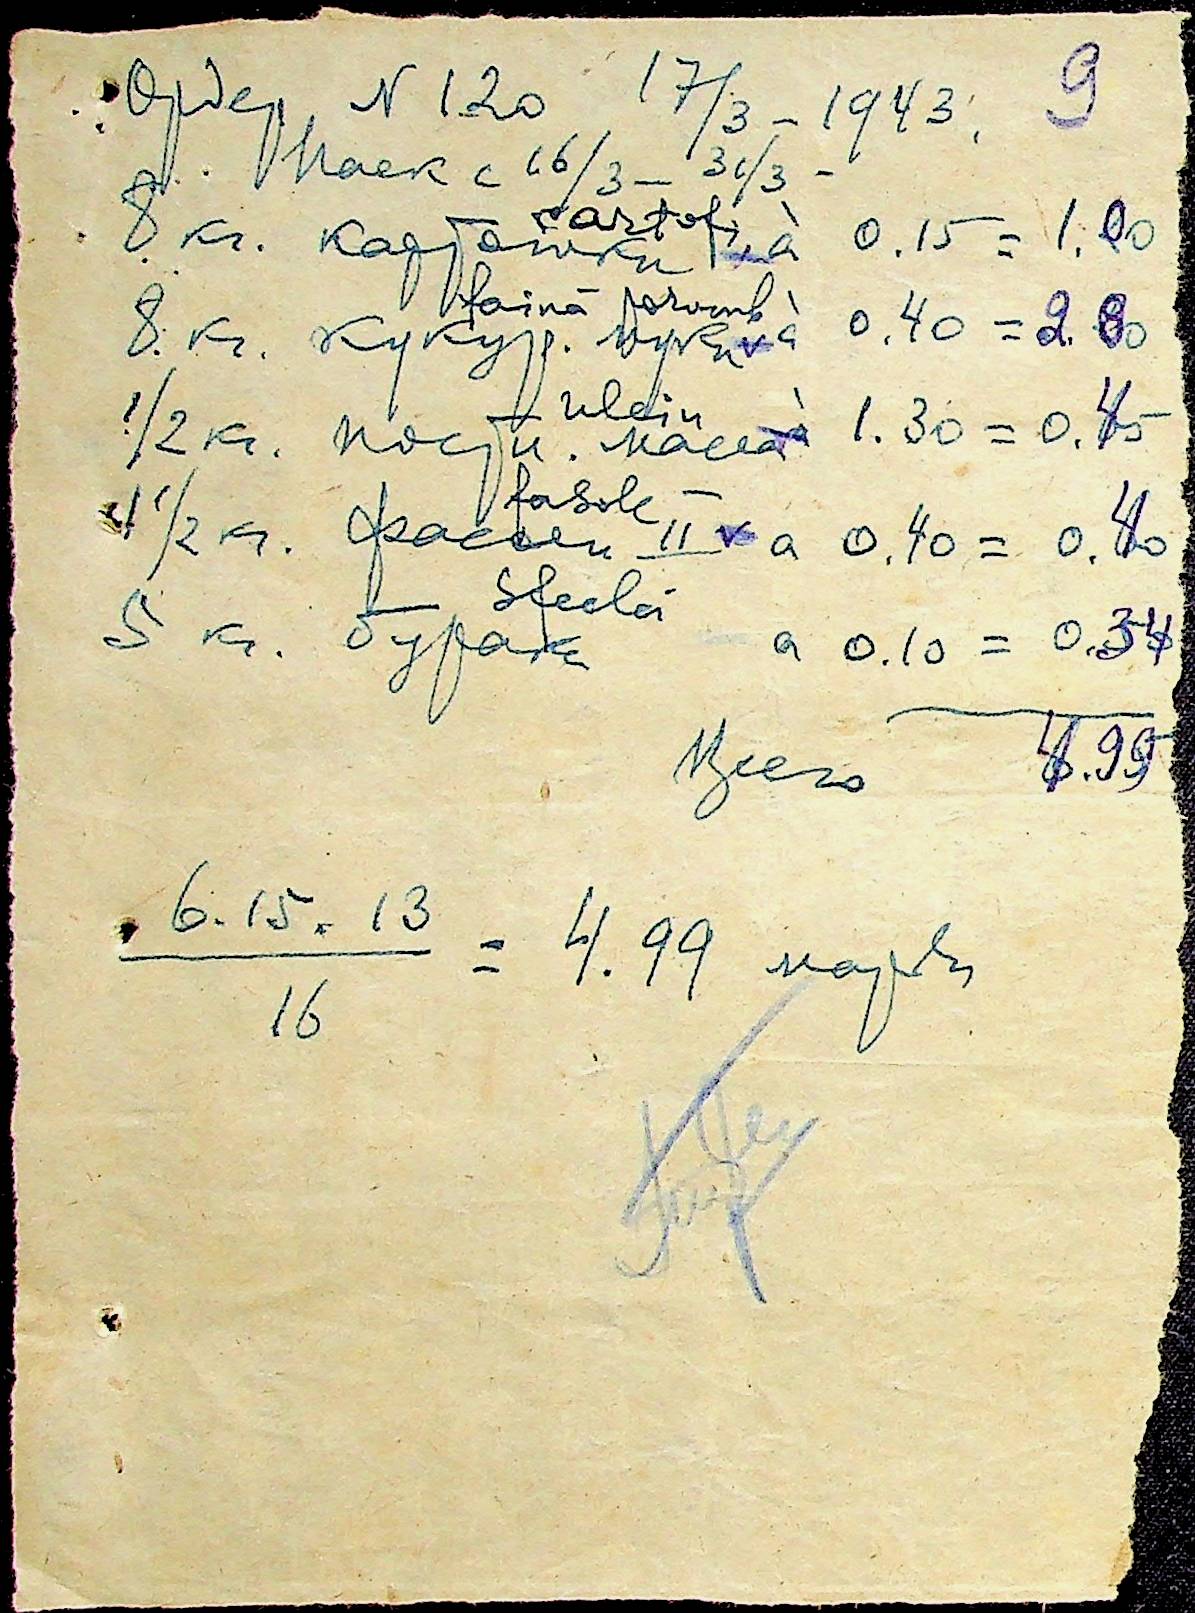 9
Ордер N 120 17/3 - 1943.
Паек с 16/3 - 31/3 -
cartofi
8 кг. картошки à 0.15 = 1.
făină porumb
8 кг. кукур. муки à 0.40 = 2.80
ulein
1/2 кг. постн. масла à 1.30 = 0.45
fasole
1 1/2 кг. фасоли II a 0.40 = 0.40
Sfeclă
5 кг. бурак a 0.10 = 0.34
Всего 4.99
6.15. 13
16
= 4.99 марки